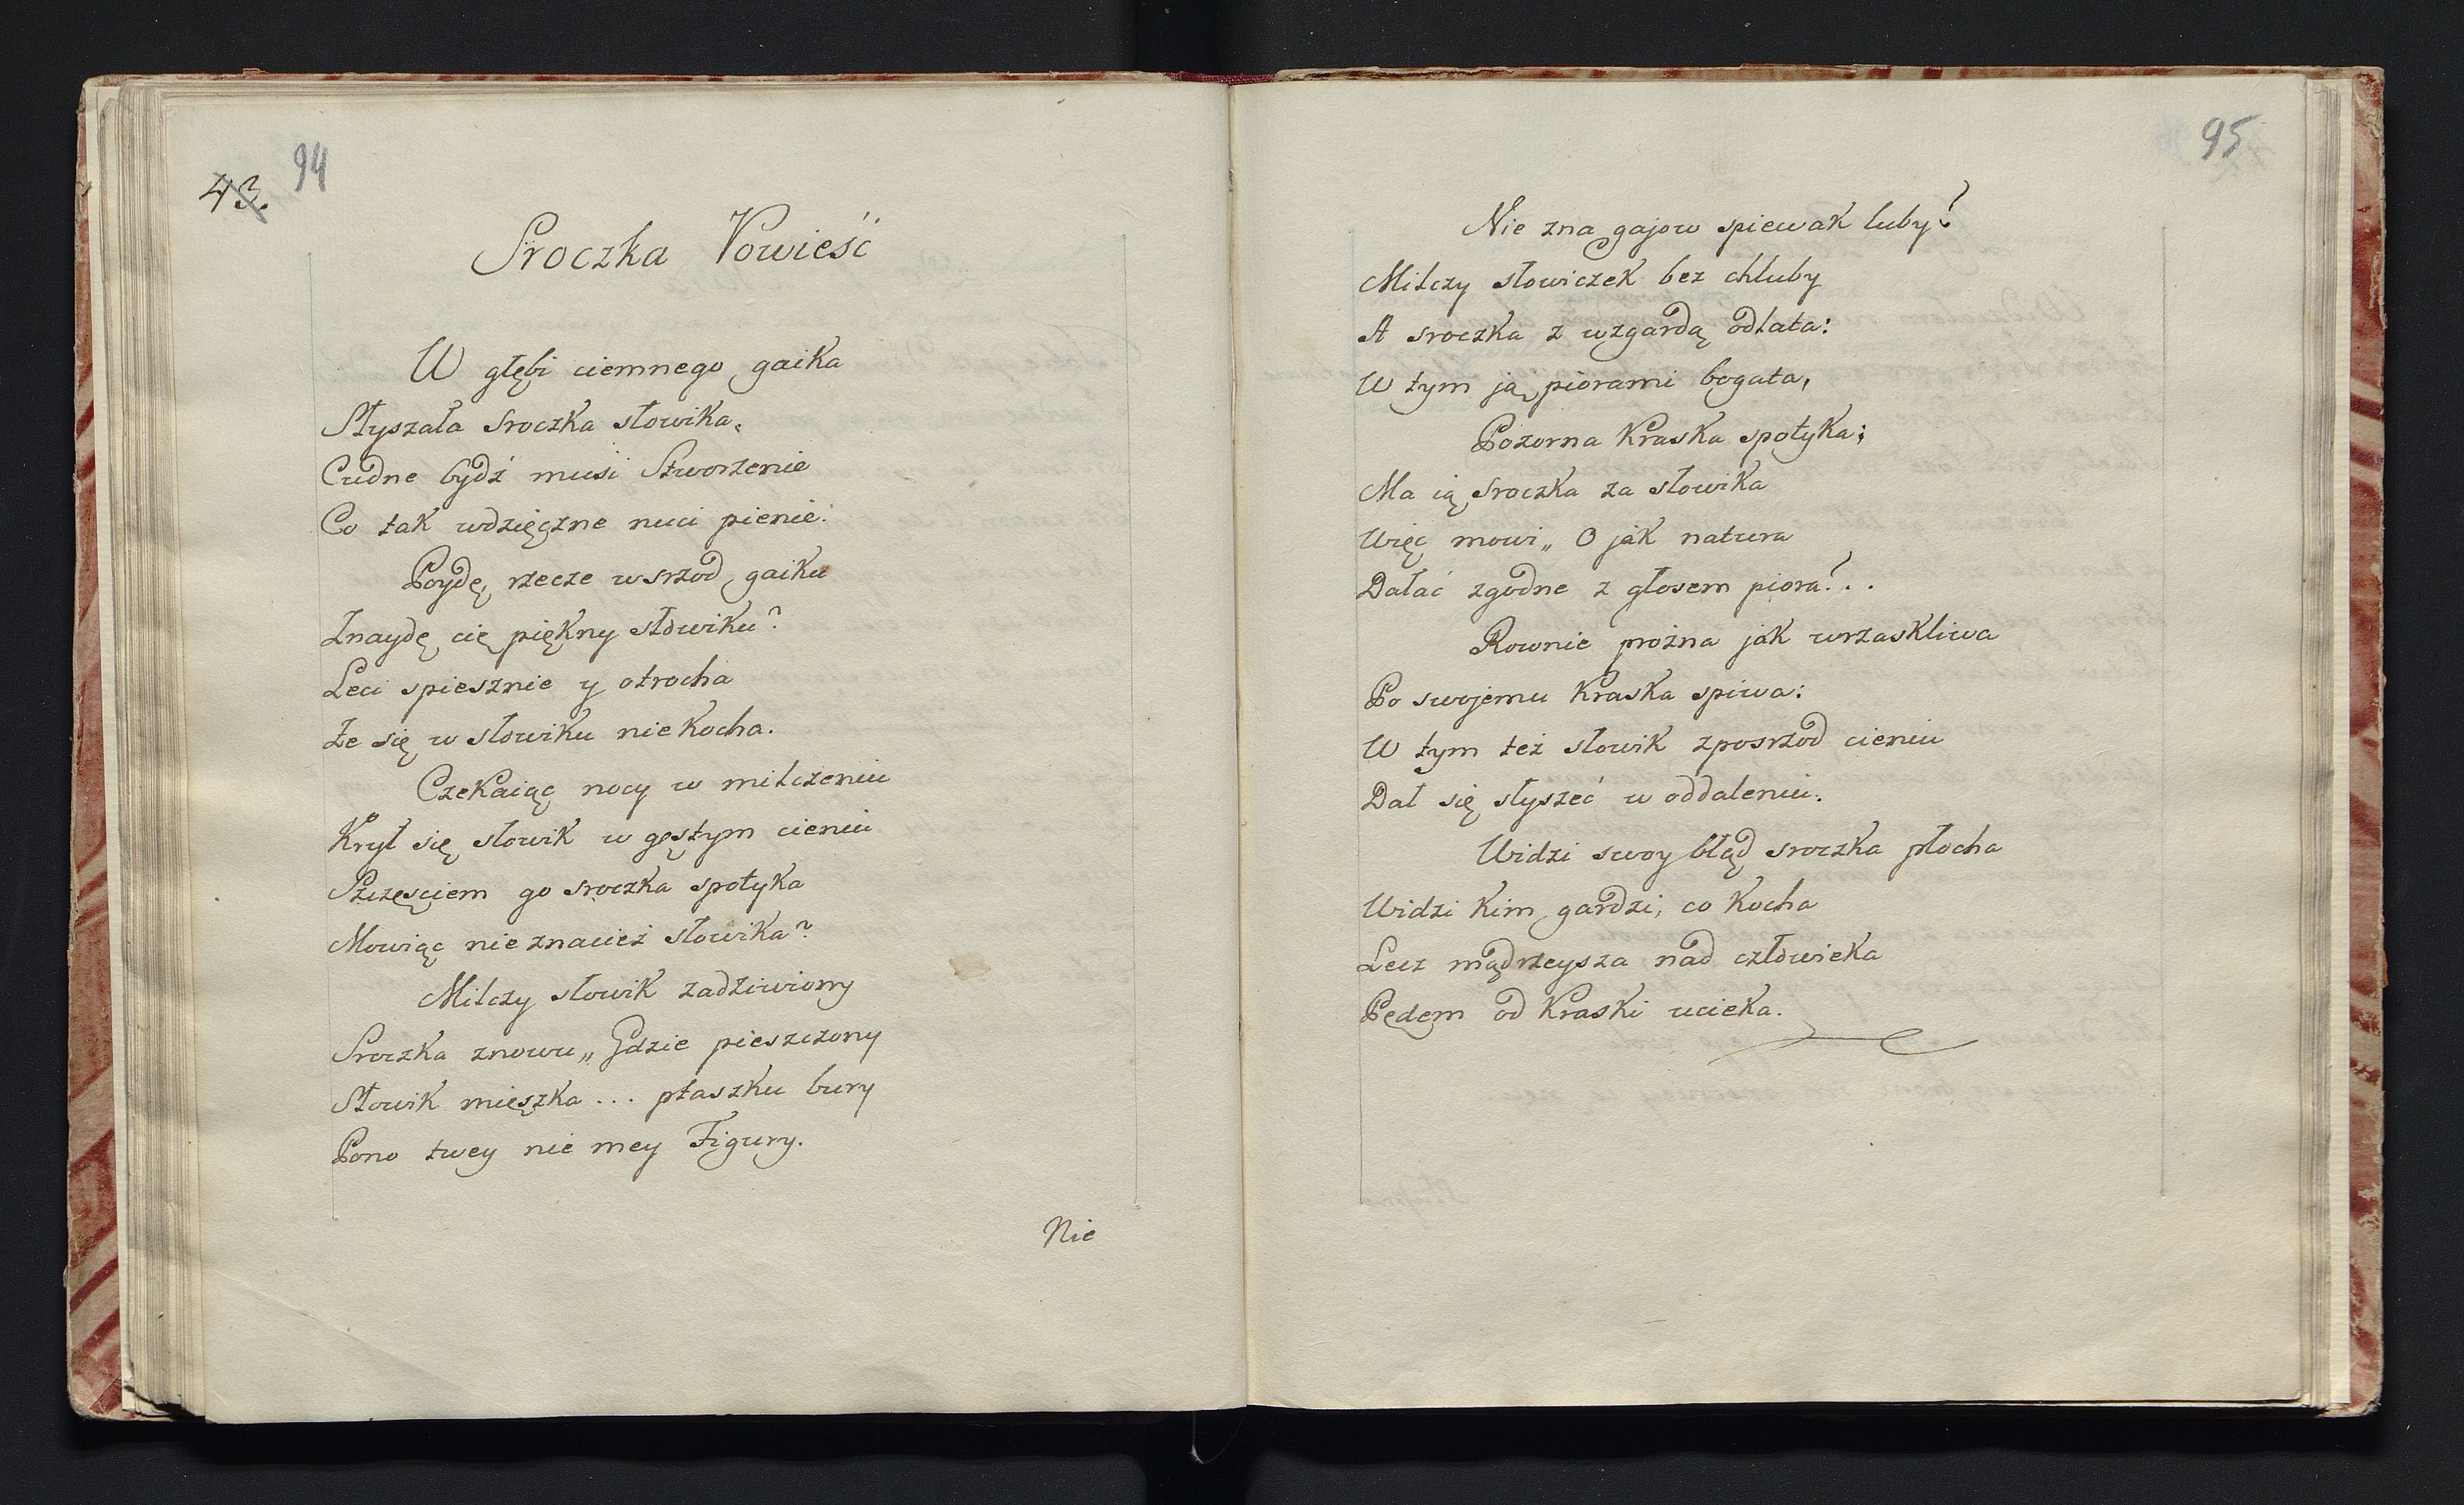 43. 94
Sroczka Powieść
W głębi ciemnego gaika
Słyszała Sroczka słowika,
Cudne bydź musi Stworzenie
Co tak wdzięczne nuci pienie.
Poydę rzecze wsrzod gaiku
Znaydę cię piękny słowiku?
Leci spiesznie y otrocha
Że się w słowiku nie kocha.
Czekaiąc nocy w milczeniu
Krył się słowik w gęstym cieniu
Szczęściem go sroczka spotyka
Mowiąc nie znacież słowika?
Milczy słowik zadziwiony
Sroczka znowu „ Gdzie pieszczony
Słowik mieszka... ptaszku bury
Pono twey nie mey Figury.
Nie
95
Nie zna gajow spiewak luby!
Milczy słowiczek bez chluby
A sroczka z wzgardą odlata:
W tym ją piorami bogata,
Pozorna kraska spotyka;
Ma ią Sroczka za słowika
Więc mowi „ O jak natura
Dałać zgodne z głosem piora!..
Rownie prożna jak wrzaskliwa
Po swojemu kraska spiwa:
W tym też słowik zposrzod cieniu
Dał się słyszeć w oddaleniu.
Widzi swoy błąd sroczka płocha
Widzi kim gardzi, co kocha
Lecz mądrzeysza nad człowieka
Pędem od kraski ucieka.